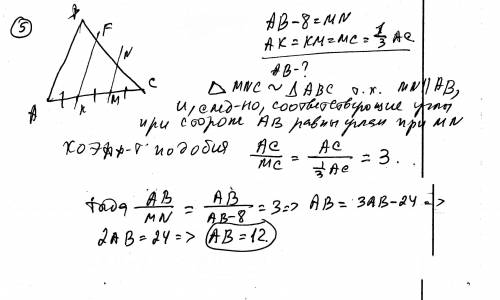 5
B
F
N
A
K
M
C
AB-8=MN
AK=KM=MC=1/3 AC
AB-?
△ MNC ~ △ ABC т.к. MN∥AB,
и, след-но, соответствующие углы
при стороне AB равны углам при MN
коэфф-т подобия AC/MC = AC/(1/3 AC) = 3 . .
тогда AB/MN = AB/(AB-8) = 3 => AB = 3AB-24 =>
2AB=24 => AB=12.